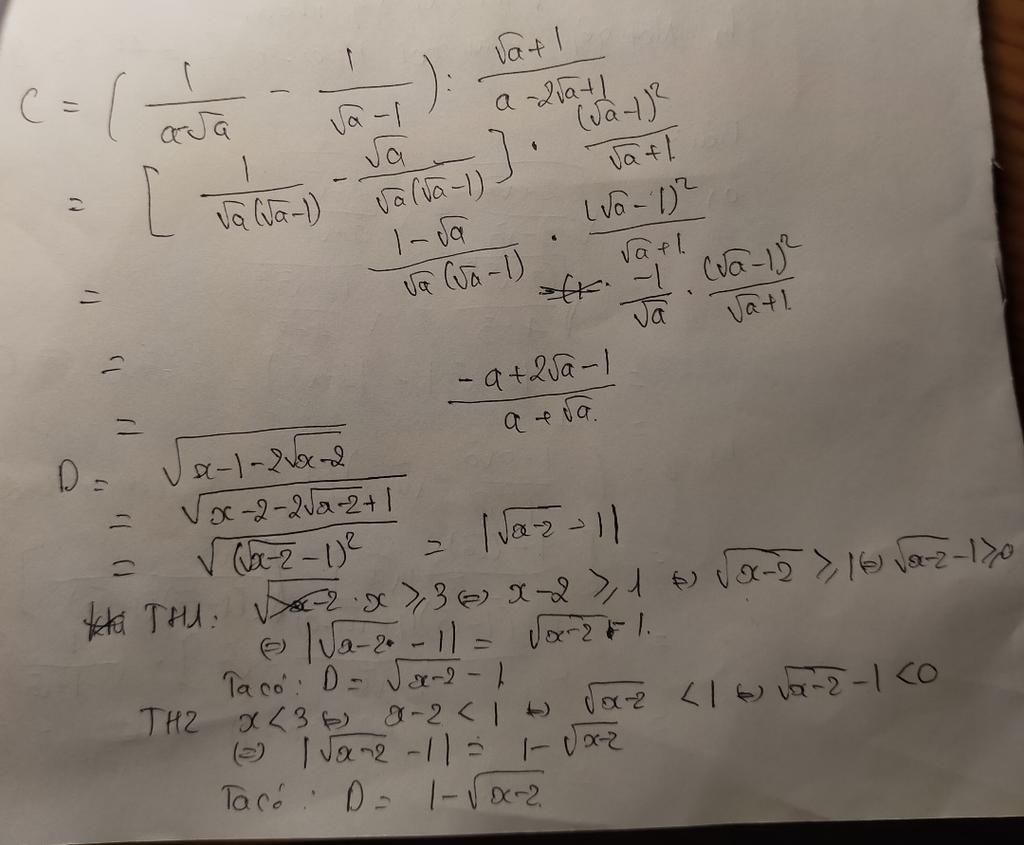 C = ( 1/(a-√a) - 1/(√a-1) ) : (√a+1)/(a-2√a+1)
= [ 1/(√a(√a-1)) - √a/(√a(√a-1)) ] . (√a-1)²/(√a+1)
= (1-√a)/(√a(√a-1)) . (√a-1)²/(√a+1)
= -1/√a . (√a-1)²/(√a+1)
= (-a+2√a-1)/(a+√a)
D = √(x-1-2√(x-2))
= √(x-2-2√(x-2)+1)
= √((√(x-2)-1)²) = |√(x-2)-1|
TH1: x ⩾ 3 ⇔ x-2 ⩾ 1 ⇔ √(x-2) ⩾ 1 ⇔ √(x-2)-1 ⩾ 0
⇔ |√(x-2)-1| = √(x-2)-1.
Ta có: D = √(x-2)-1
TH2 x<3 ⇔ x-2<1 ⇔ √(x-2) <1 ⇔ √(x-2)-1<0
⇔ |√(x-2)-1| = 1-√(x-2)
Ta có: D = 1-√(x-2)